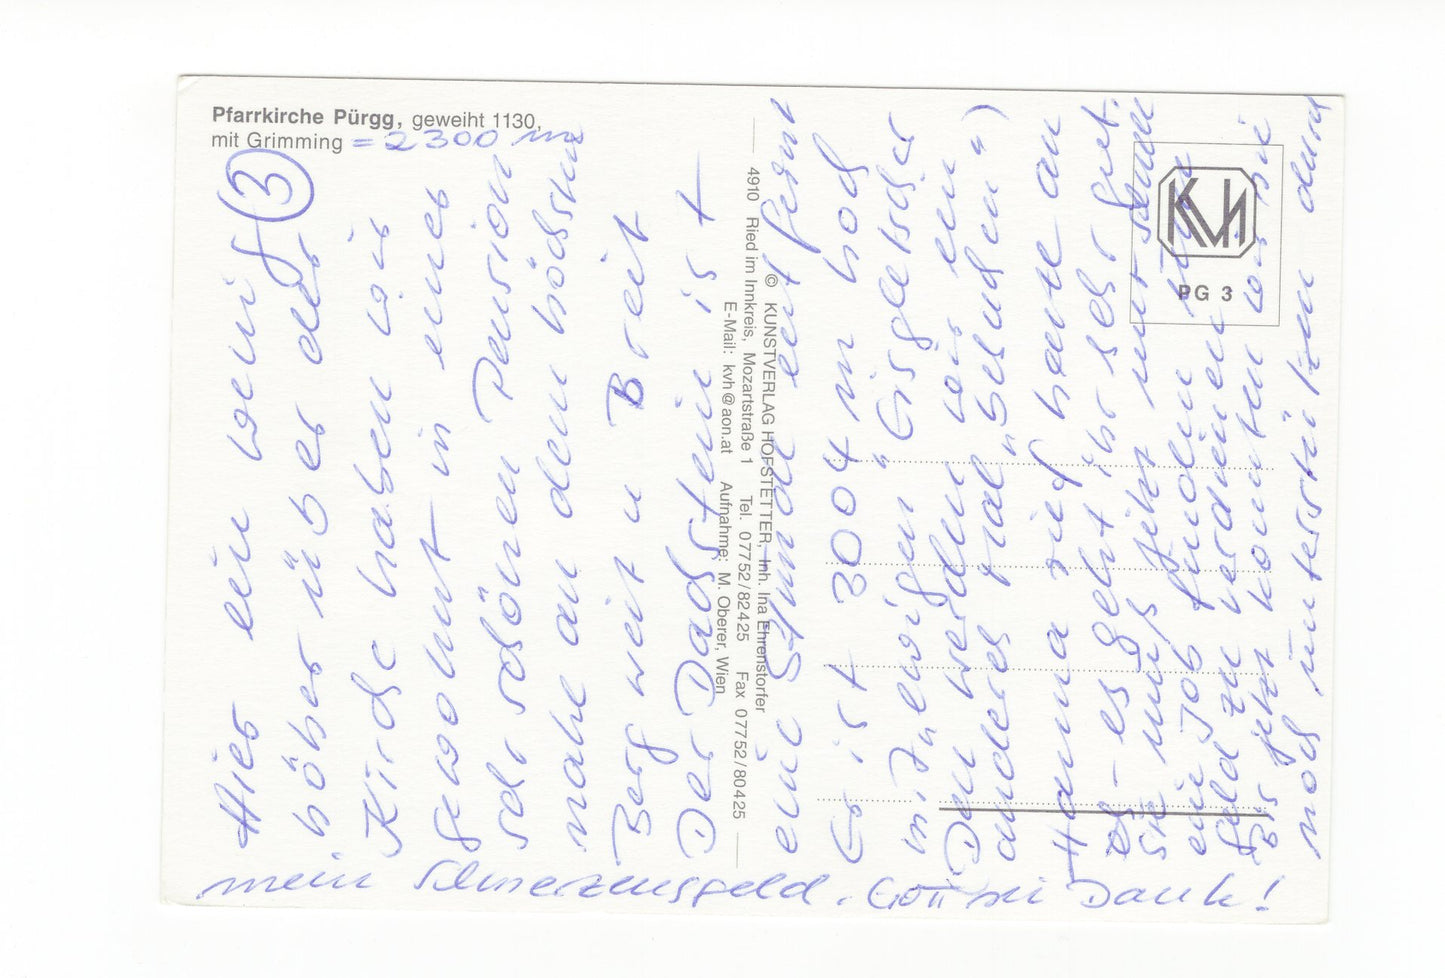 Pfarrkirche Pürgg, geweiht 1130,
mit Grimming = 2300 m
3
Hier ein wenig
höher über der
Kirche haben wir
gewohnt in einer
sehr schönen Pension
nahe an dem höchsten
Berg weit u Breit
Der Dachstein ist
eine Stunde entfernt
Er ist 3004 m hoch
mit "ewigen" Eisgletscher
Den werden wir ein
anderes Mal "besuchen")
Hanna rief heute an
es geht ihr sehr gut.
Sie muß jetzt nur schnell
ein Job finden um
Geld zu verdienen
Bis jetzt konnten wir sie
noch unterstützen durch
mein Schmerzensgeld. Gott sei Dank!
4910 Ried im Innkreis, Mozartstraße 1 Tel. 07752/82425 Fax 07752/80425
© KUNSTVERLAG HOFSTETTER, Inh. Ina Ehrenstorfer
E-Mail: kvh@aon.at Aufnahme: M. Oberer, Wien
KVH
PG 3